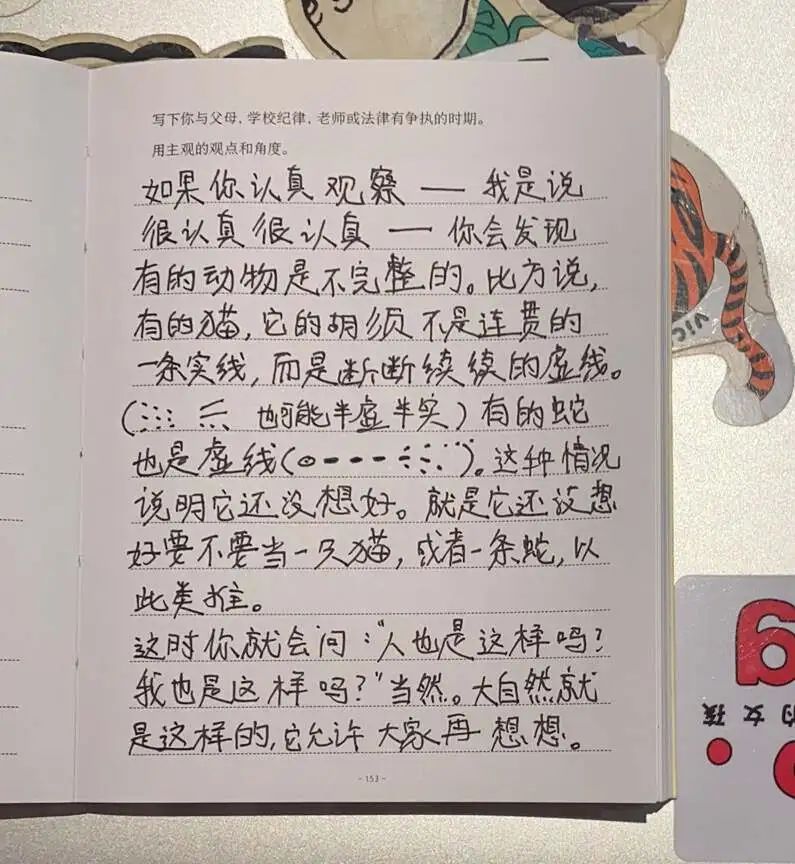 写下你与父母，学校纪律，老师或法律有争执的时期。
用主观的观点和角度。
如果你认真观察 — 我是说
很认真很认真 — 你会发现
有的动物是不完整的。比方说，
有的猫，它的胡须不是连贯的
一条实线，而是断断续续的虚线。
( 也可能半虚半实）有的蛇
也是虚线( )。这种情况
说明它还没想好。就是它还没想
好要不要当一只猫，或者一条蛇，以
此类推。
这时你就会问："人也是这样吗？
我也是这样吗？"当然。大自然就
是这样的，它允许大家再想想。
- 153 -
VIC
的女孩